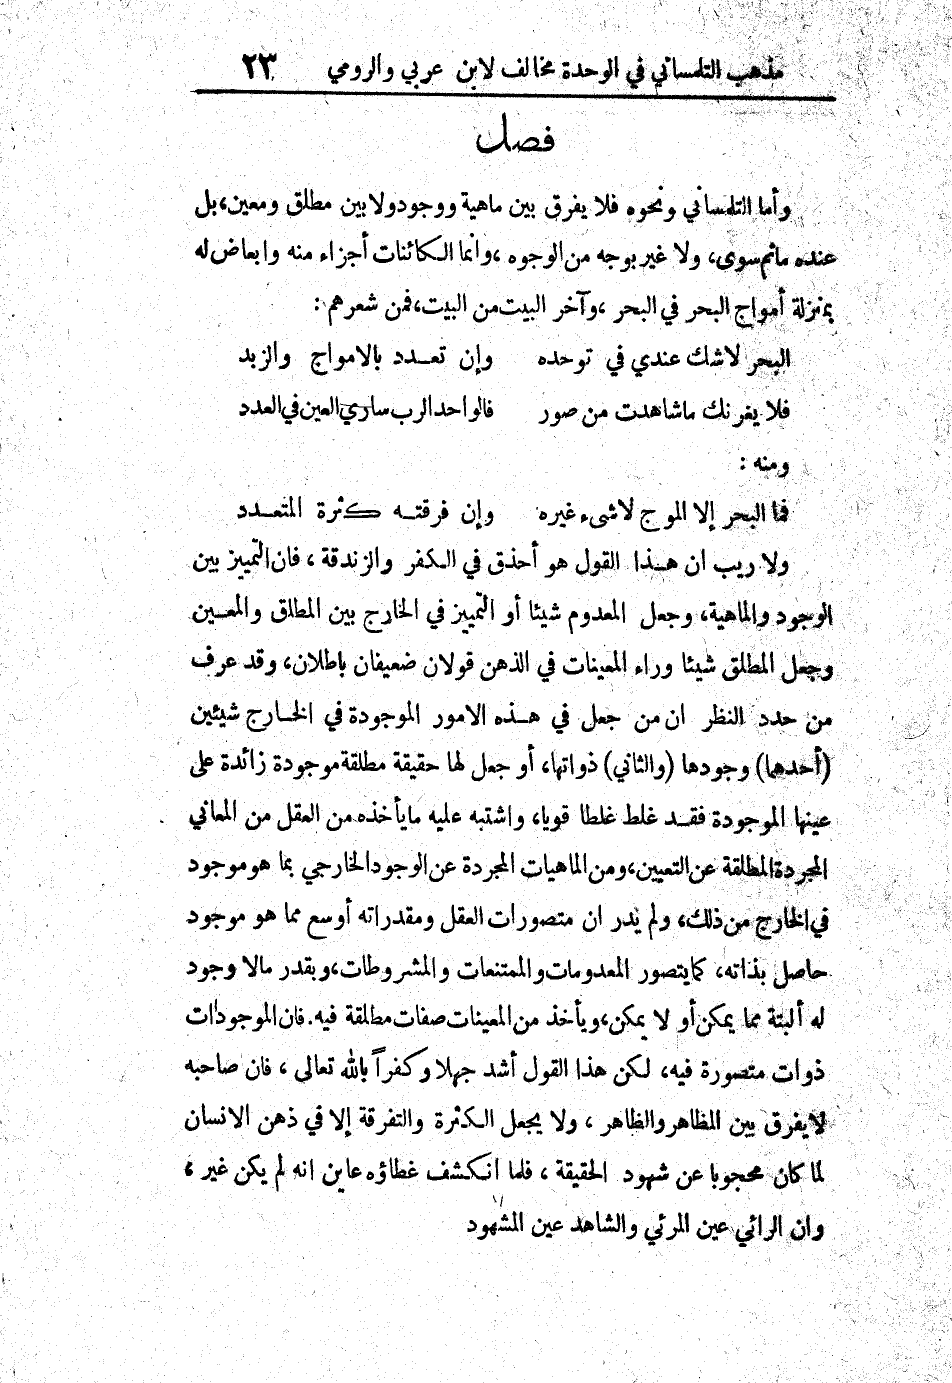 مذهب التلمساني في الوحدة مخالف لابن عربي والرومي ٢٣
فصل
وأما التلمساني ونحوه فلا يفرق بين ماهية ووجود ولا بين مطلق ومعين، بل
عنده ماثم سوى، ولا غير بوجه من الوجوه، وانما الكائنات أجزاء منه وابعاض له
بمنزلة أمواج البحر في البحر، وآخر البيت من البيت، فمن شعرهم:
البحر لاشك عندي في توحده وإن تعدد بالامواج والزبد
فلا يغرنك ماشاهدت من صور فالواحد الرب ساري العين في العدد
ومنه:
فما البحر إلا الموج لاشيء غيره وإن فرقته كثرة المتعدد
ولا ريب ان هذا القول هو أحذق في الكفر والزندقة، فان التمييز بين
الوجود والماهية، وجعل المعدوم شيئا أو التمييز في الخارج بين المطلق والمعين
وجعل المطلق شيئا وراء المعينات في الذهن قولان ضعيفان باطلان، وقد عرف
من حدد النظر ان من جعل في هذه الامور الموجودة في الخارج شيئين
(أحدهما) وجودها (والثاني) ذواتها، أو جعل لها حقيقة مطلقة موجودة زائدة على
عينها الموجودة فقد غلط غلطا قويا، واشتبه عليه مايأخذه من العقل من المعاني
المجردة المطلقة عن التعيين، ومن الماهيات المجردة عن الوجود الخارجي بما هو موجود
في الخارج من ذلك، ولم يدر ان متصورات العقل ومقدراته أوسع مما هو موجود
حاصل بذاته، كما يتصور المعدومات والممتنعات والمشروطات، ويقدر مالا وجود
له ألبتة مما يمكن أو لا يمكن، ويأخذ من المعينات صفات مطلقة فيه. فان الموجودات
ذوات متصورة فيه، لكن هذا القول أشد جهلا وكفراً بالله تعالى، فان صاحبه
لا يفرق بين المظاهر والظاهر، ولا يجعل الكثرة والتفرقة إلا في ذهن الانسان
لما كان محجوبا عن شهود الحقيقة، فلما انكشف غطاؤه عاين انه لم يكن غير،
وان الرائي عين المرئي والشاهد عين المشهود